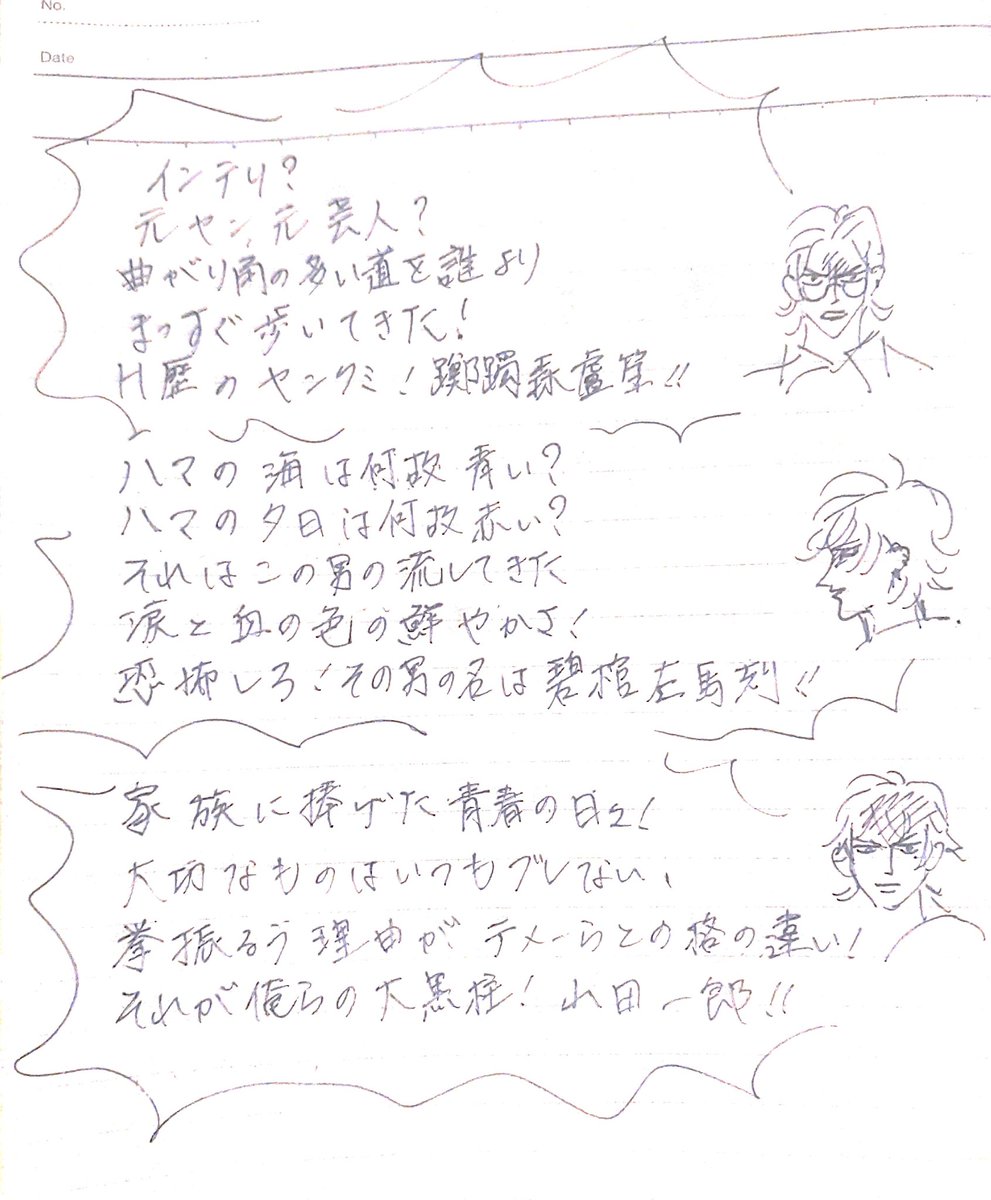 No.
Date
インテリ?
元ヤン、元芸人?
曲がり角の多い道を誰より
まっすぐ歩いてきた!
H歴のヤンクミ!躑躅森盧笙!!
ハマの海は何故青い?
ハマの夕日は何故赤い?
それはこの男の流してきた
涙と血の色の鮮やかさ!
恐怖しろ!その男の名は碧棺左馬刻!!
家族に捧げた青春の日々!
大切なものはいつもブレない、
拳振るう理由がテメーらとの格の違い!
それが俺らの大黒柱!山田一郎!!